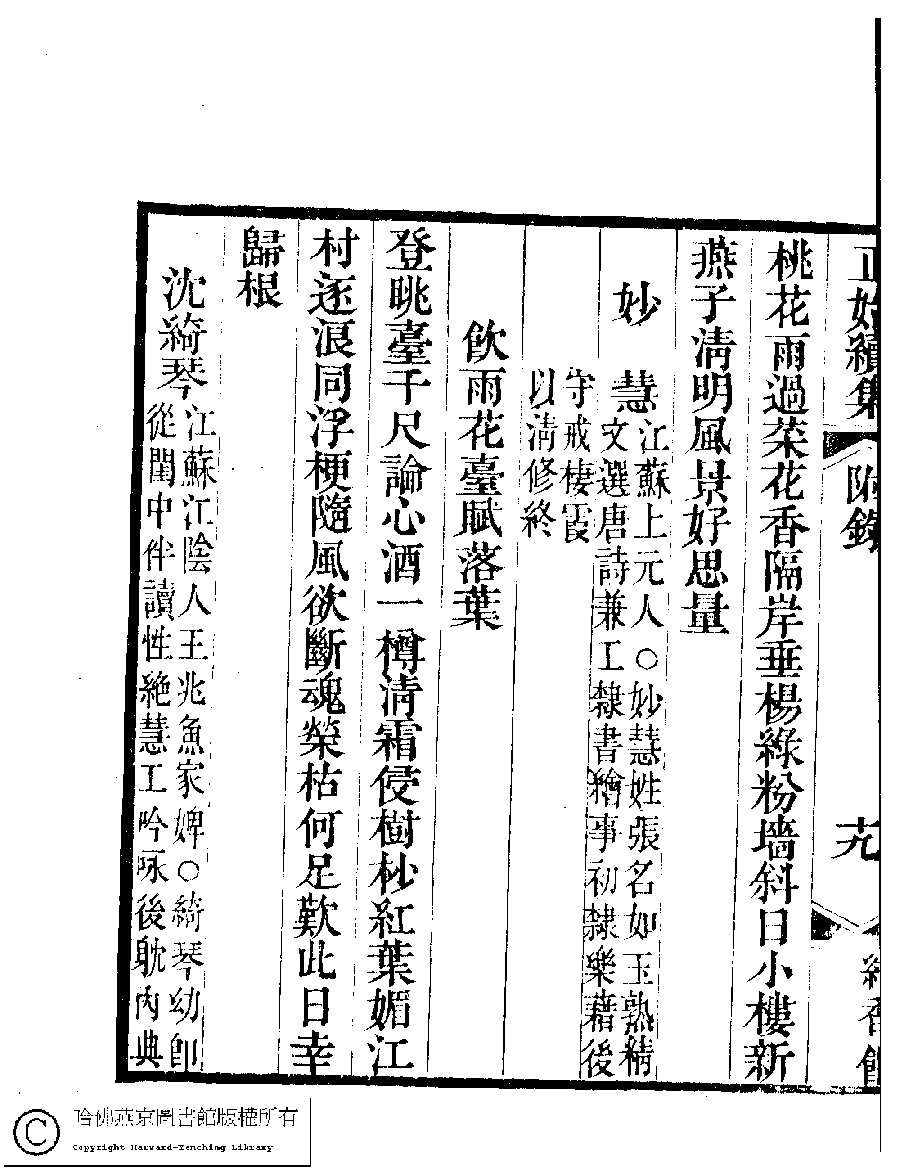 正始續集 附錄 十九 紅香館
桃花雨過菜花香隔岸垂楊綠粉墻斜日小樓新
燕子清明風景好思量
妙慧江蘇上元人○妙慧姓張名如玉熟精
文選唐詩兼工隸書繪事初隸樂藉後
守戒棲霞
以清修終
飲雨花臺賦落葉
登眺臺千尺論心酒一樽清霜侵樹杪紅葉媚江
村逐浪同浮梗隨風欲斷魂榮枯何足歎此日幸
歸根
沈綺琴江蘇江陰人王兆魚家婢○綺琴幼即
從閨中伴讀性絕慧工吟咏後耽內典
哈佛燕京圖書館版權所有
Copyright Harvard-Yenching Library